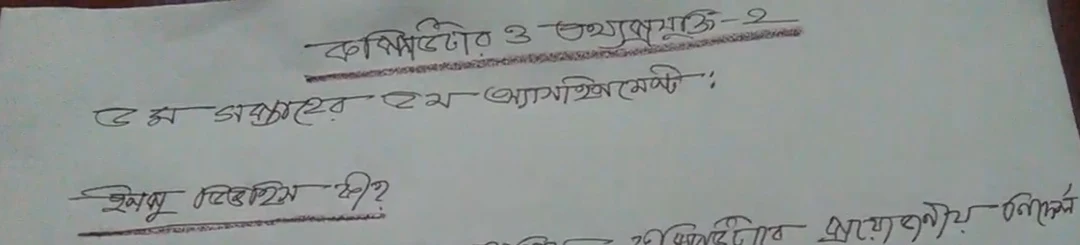 কম্পিউটার ও তথ্যপ্রযুক্তি-২
৩য় সপ্তাহের ২য় অ্যাসাইনমেন্ট :
ইনপু ডিভাইস কী?
কম্পিউটার প্রয়োজনীয় নির্দেশ